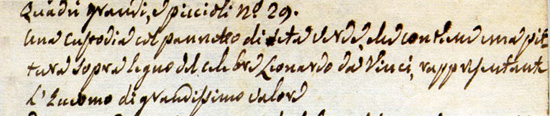 Quadri grandi, e piccioli n.º 29.
Una custodia col panneto di seta verde, che contiene una pit
tura sopra legno del celebre Leonardo da Vinci, rappresentante
L'Eucomo di grandissimo valore